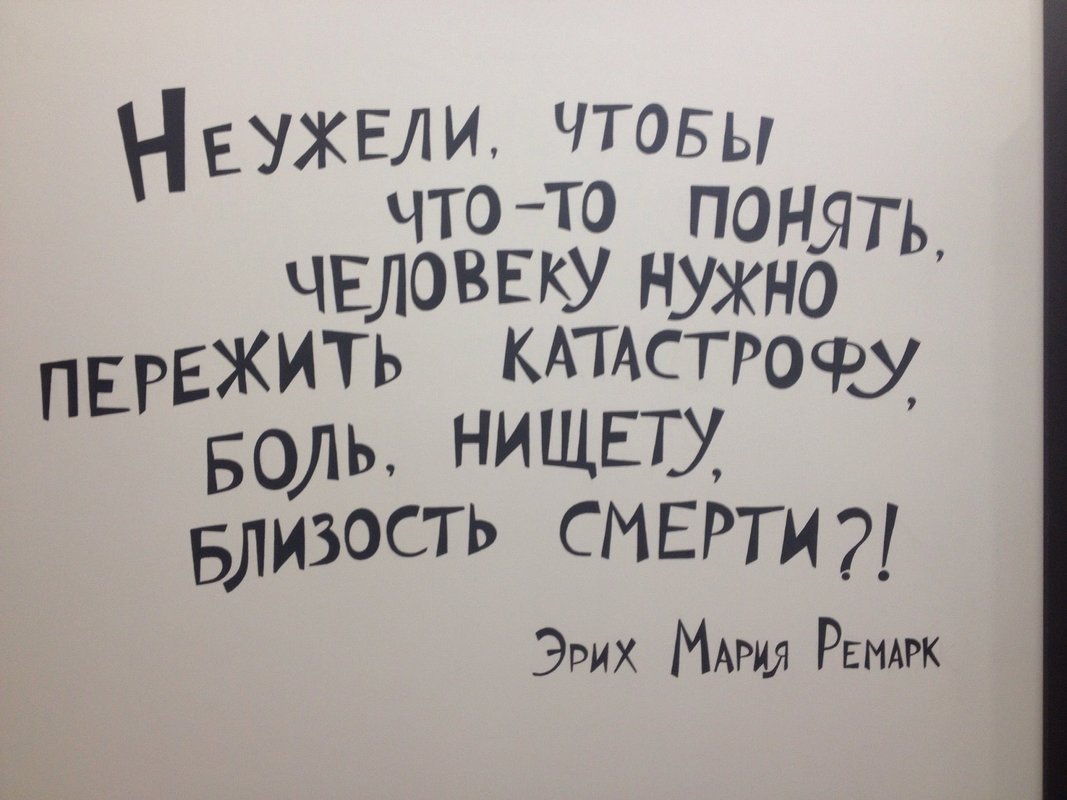 Неужели, чтобы
что-то понять,
человеку нужно
пережить катастрофу,
боль, нищету,
близость смерти?!
Эрих Мария Ремарк